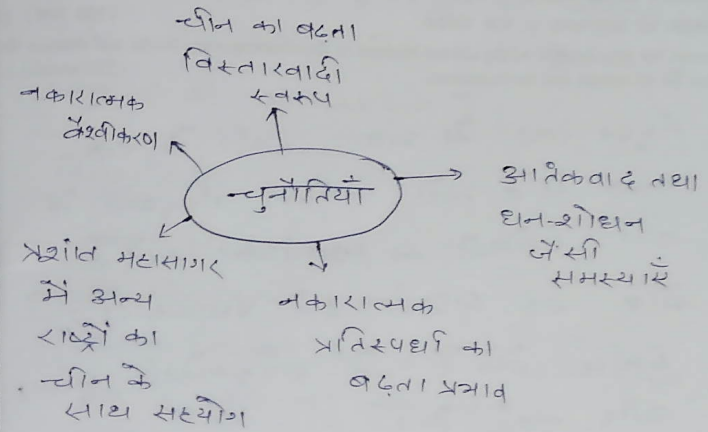 चीन का बढ़ता
विस्तारवादी
स्वरूप
नकारात्मक
वैश्वीकरण
चुनौतियाँ
आतंकवाद तथा
धन-शोधन
जैसी
समस्याएँ
प्रशांत महासागर
में अन्य
राष्ट्रों का
चीन के
साथ सहयोग
नकारात्मक
प्रतिस्पर्धा का
बढ़ता प्रभाव